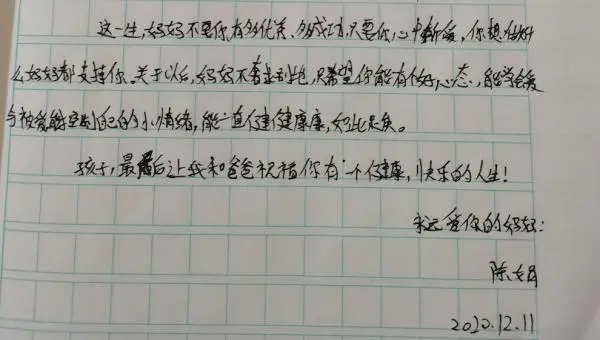 这一生,妈妈不要你有多优秀、多成功,只要你心中有爱,你想做什
么妈妈都支持你。关于以后,妈妈不奢求别的,只希望你能有个好心态,能学会爱
与被爱能控制自己的小情绪,能一直健健康康,如此足矣。
孩子,最后让我和爸爸祝福你有一个健康,快乐的人生!
永远爱你的妈妈:
陈
2020.12.11